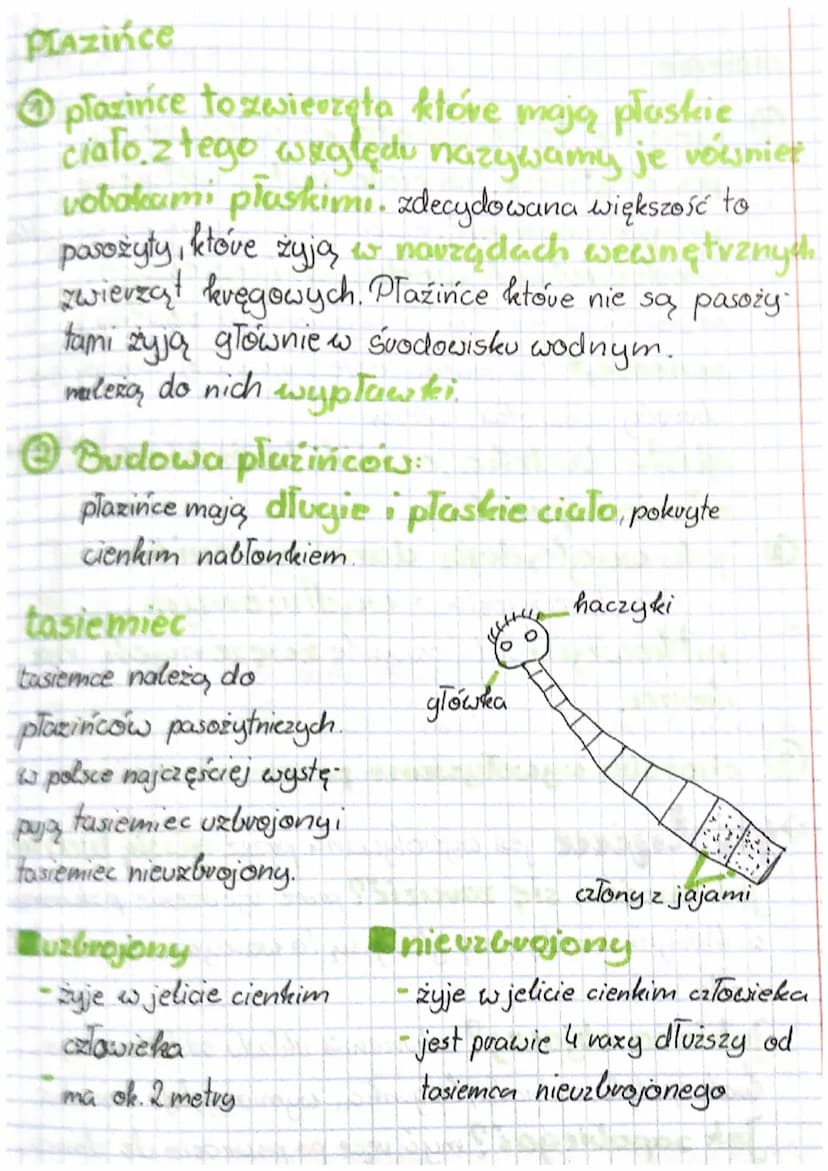 PŁAZIńCE
① płazińce to zwierzęta które mają płaskie
ciało. z tego względu nazywamy je również
robakami płaskimi. zdecydowana większość to
pasożyty, które żyją w narządach wewnętrznych
zwierząt kręgowych. Płazińce które nie są pasoży-
tami żyją głównie w środowisku wodnym.
należą do nich wypławki.
② Budowa płazińców:
płazińce mają długie i płaskie ciało, pokryte
cienkim nabłonkiem.
tasiemiec
tasiemce należą do
płazińców pasożytniczych.
w polsce najczęściej wystę-
pują tasiemiec uzbrojony i
tasiemiec nieuzbrojony.
haczyki
główka
człony z jajami
uzbrojony
- żyje w jelicie cienkim
człowieka
- ma ok. 2 metry
nieuzbrojony
- żyje w jelicie cienkim człowieka
- jest prawie 4 razy dłuższy od
tasiemca nieuzbrojonego